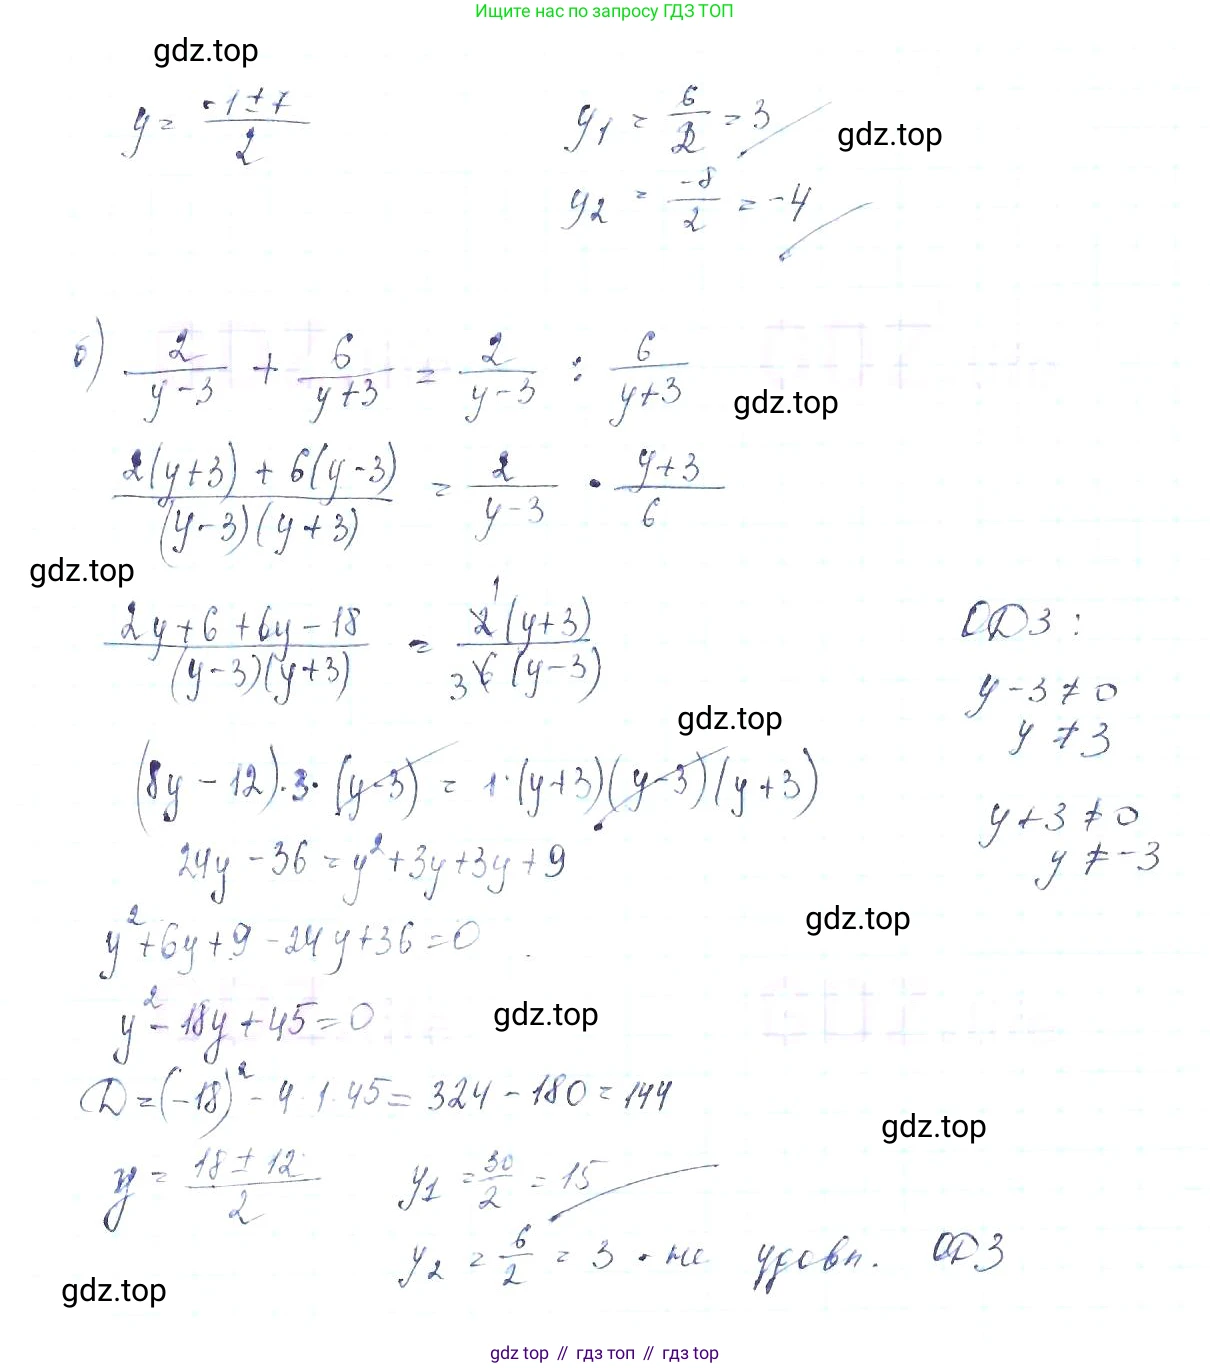 Ищите нас по запросу ГДЗ ТОП
gdz.top
y = (-1 ± 7)/2
y₁ = 6/2 = 3
gdz.top
y₂ = -8/2 = -4
б) 2/(y-3) + 6/(y+3) = 2/(y-3) : 6/(y+3)
gdz.top
(2(y+3) + 6(y-3))/((y-3)(y+3)) = 2/(y-3) · (y+3)/6
gdz.top
(2y+6+6y-18)/((y-3)(y+3)) = 1 2(y+3)/(3 6(y-3))
ОДЗ:
y-3≠0
y≠3
gdz.top
(8y-12)·3·(y-3) = 1·(y+3)(y-3)(y+3)
y+3≠0
y≠-3
24y-36 = y²+3y+3y+9
gdz.top
y²+6y+9-24y+36=0
y²-18y+45=0
gdz.top
D=(-18)²-4·1·45=324-180=144
gdz.top
y = (18±12)/2
y₁ = 30/2 = 15
y₂ = 6/2 = 3 - не удовл. ОДЗ
gdz.top
gdz top // гдз топ // gdz top